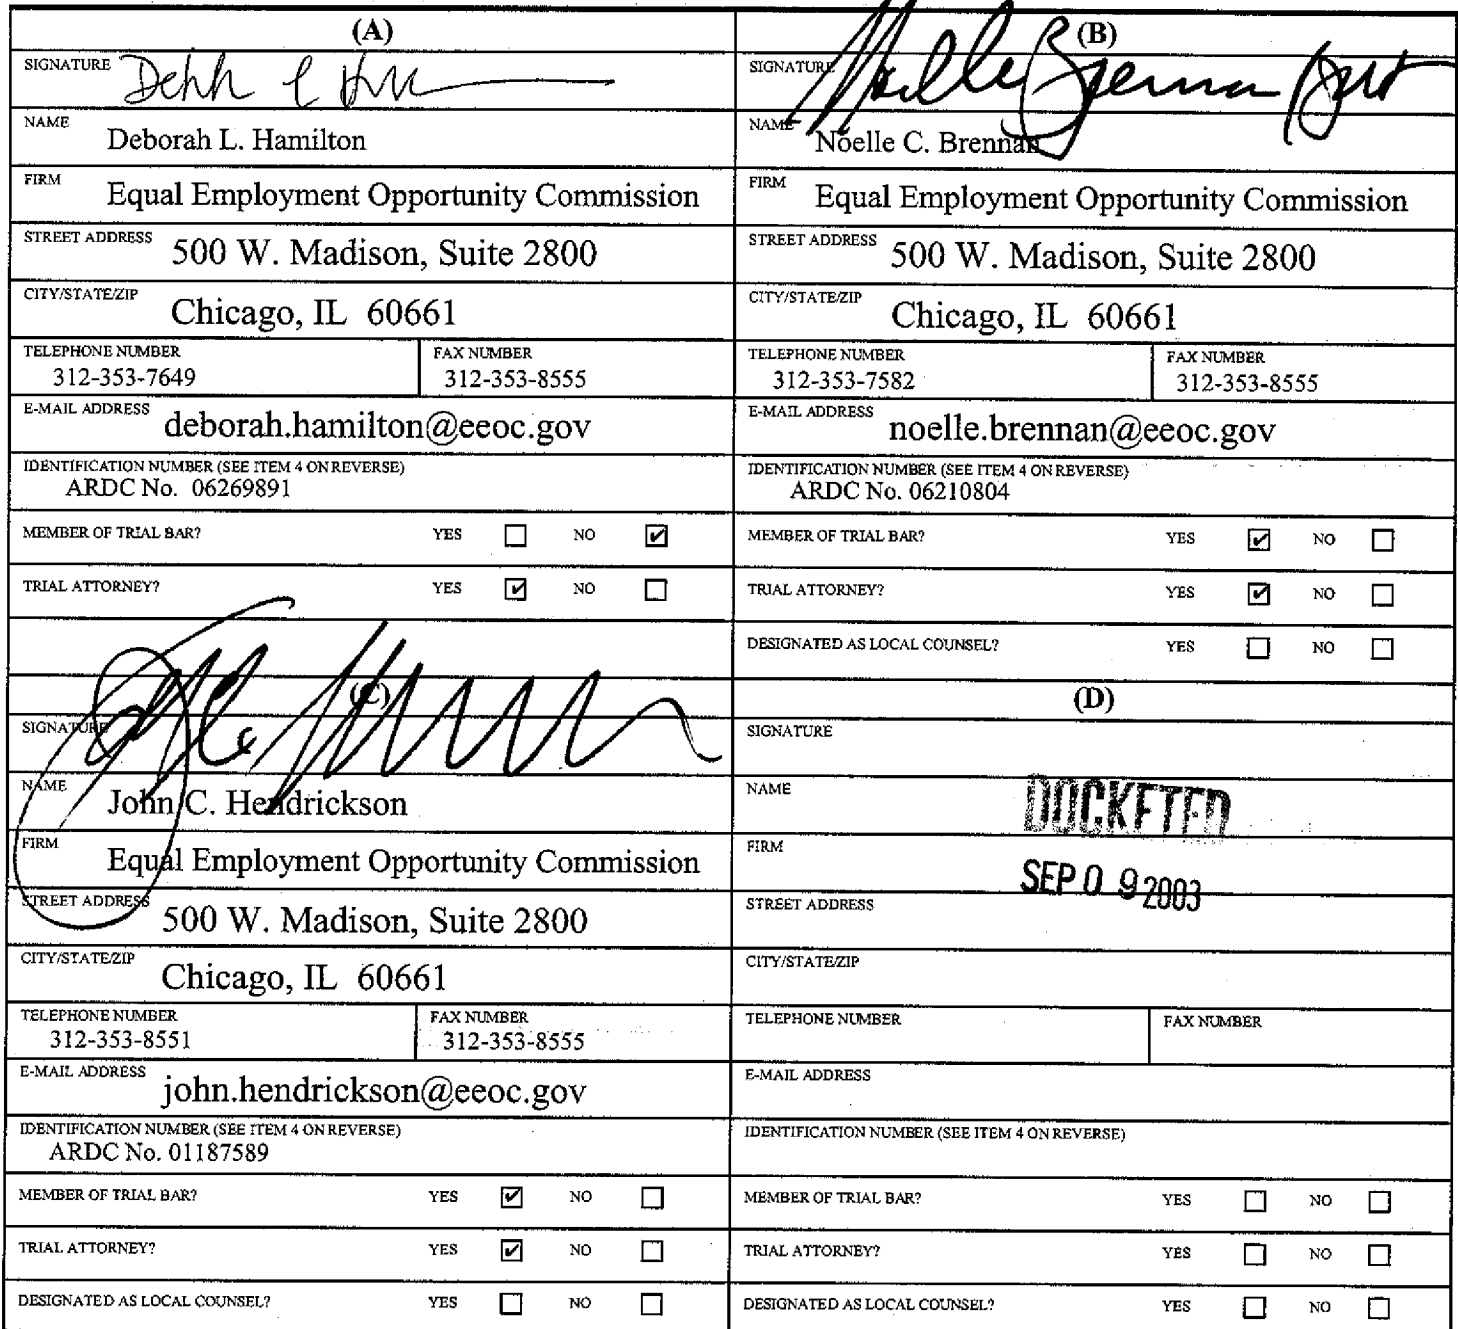 (A)
SIGNATURE
NAME
Deborah L. Hamilton
FIRM
Equal Employment Opportunity Commission
STREET ADDRESS 500 W. Madison, Suite 2800
CITY/STATE/ZIP
Chicago, IL 60661
TELEPHONE NUMBER
312-353-7649
FAX NUMBER
312-353-8555
E-MAIL ADDRESS
deborah.hamilton@eeoc.gov
IDENTIFICATION NUMBER (SEE ITEM 4 ON REVERSE)
ARDC No. 06269891
MEMBER OF TRIAL BAR? YES ☐ NO ☑
TRIAL ATTORNEY? YES ☑ NO ☐
(B)
SIGNATURE Noelle Brennan
NAME
Noelle C. Brennan
FIRM
Equal Employment Opportunity Commission
STREET ADDRESS 500 W. Madison, Suite 2800
CITY/STATE/ZIP
Chicago, IL 60661
TELEPHONE NUMBER
312-353-7582
FAX NUMBER
312-353-8555
E-MAIL ADDRESS
noelle.brennan@eeoc.gov
IDENTIFICATION NUMBER (SEE ITEM 4 ON REVERSE)
ARDC No. 06210804
MEMBER OF TRIAL BAR? YES ☑ NO ☐
TRIAL ATTORNEY? YES ☑ NO ☐
DESIGNATED AS LOCAL COUNSEL? YES ☐ NO ☐
(C)
SIGNATURE
NAME
John C. Hendrickson
FIRM
Equal Employment Opportunity Commission
STREET ADDRESS
500 W. Madison, Suite 2800
CITY/STATE/ZIP
Chicago, IL 60661
TELEPHONE NUMBER
312-353-8551
FAX NUMBER
312-353-8555
E-MAIL ADDRESS
john.hendrickson@eeoc.gov
IDENTIFICATION NUMBER (SEE ITEM 4 ON REVERSE)
ARDC No. 01187589
MEMBER OF TRIAL BAR? YES ☑ NO ☐
TRIAL ATTORNEY? YES ☑ NO ☐
DESIGNATED AS LOCAL COUNSEL? YES ☐ NO ☐
(D)
SIGNATURE
NAME
DOCKETED
FIRM
SEP 0 9 2003
STREET ADDRESS
CITY/STATE/ZIP
TELEPHONE NUMBER
FAX NUMBER
E-MAIL ADDRESS
IDENTIFICATION NUMBER (SEE ITEM 4 ON REVERSE)
MEMBER OF TRIAL BAR? YES ☐ NO ☐
TRIAL ATTORNEY? YES ☐ NO ☐
DESIGNATED AS LOCAL COUNSEL? YES ☐ NO ☐